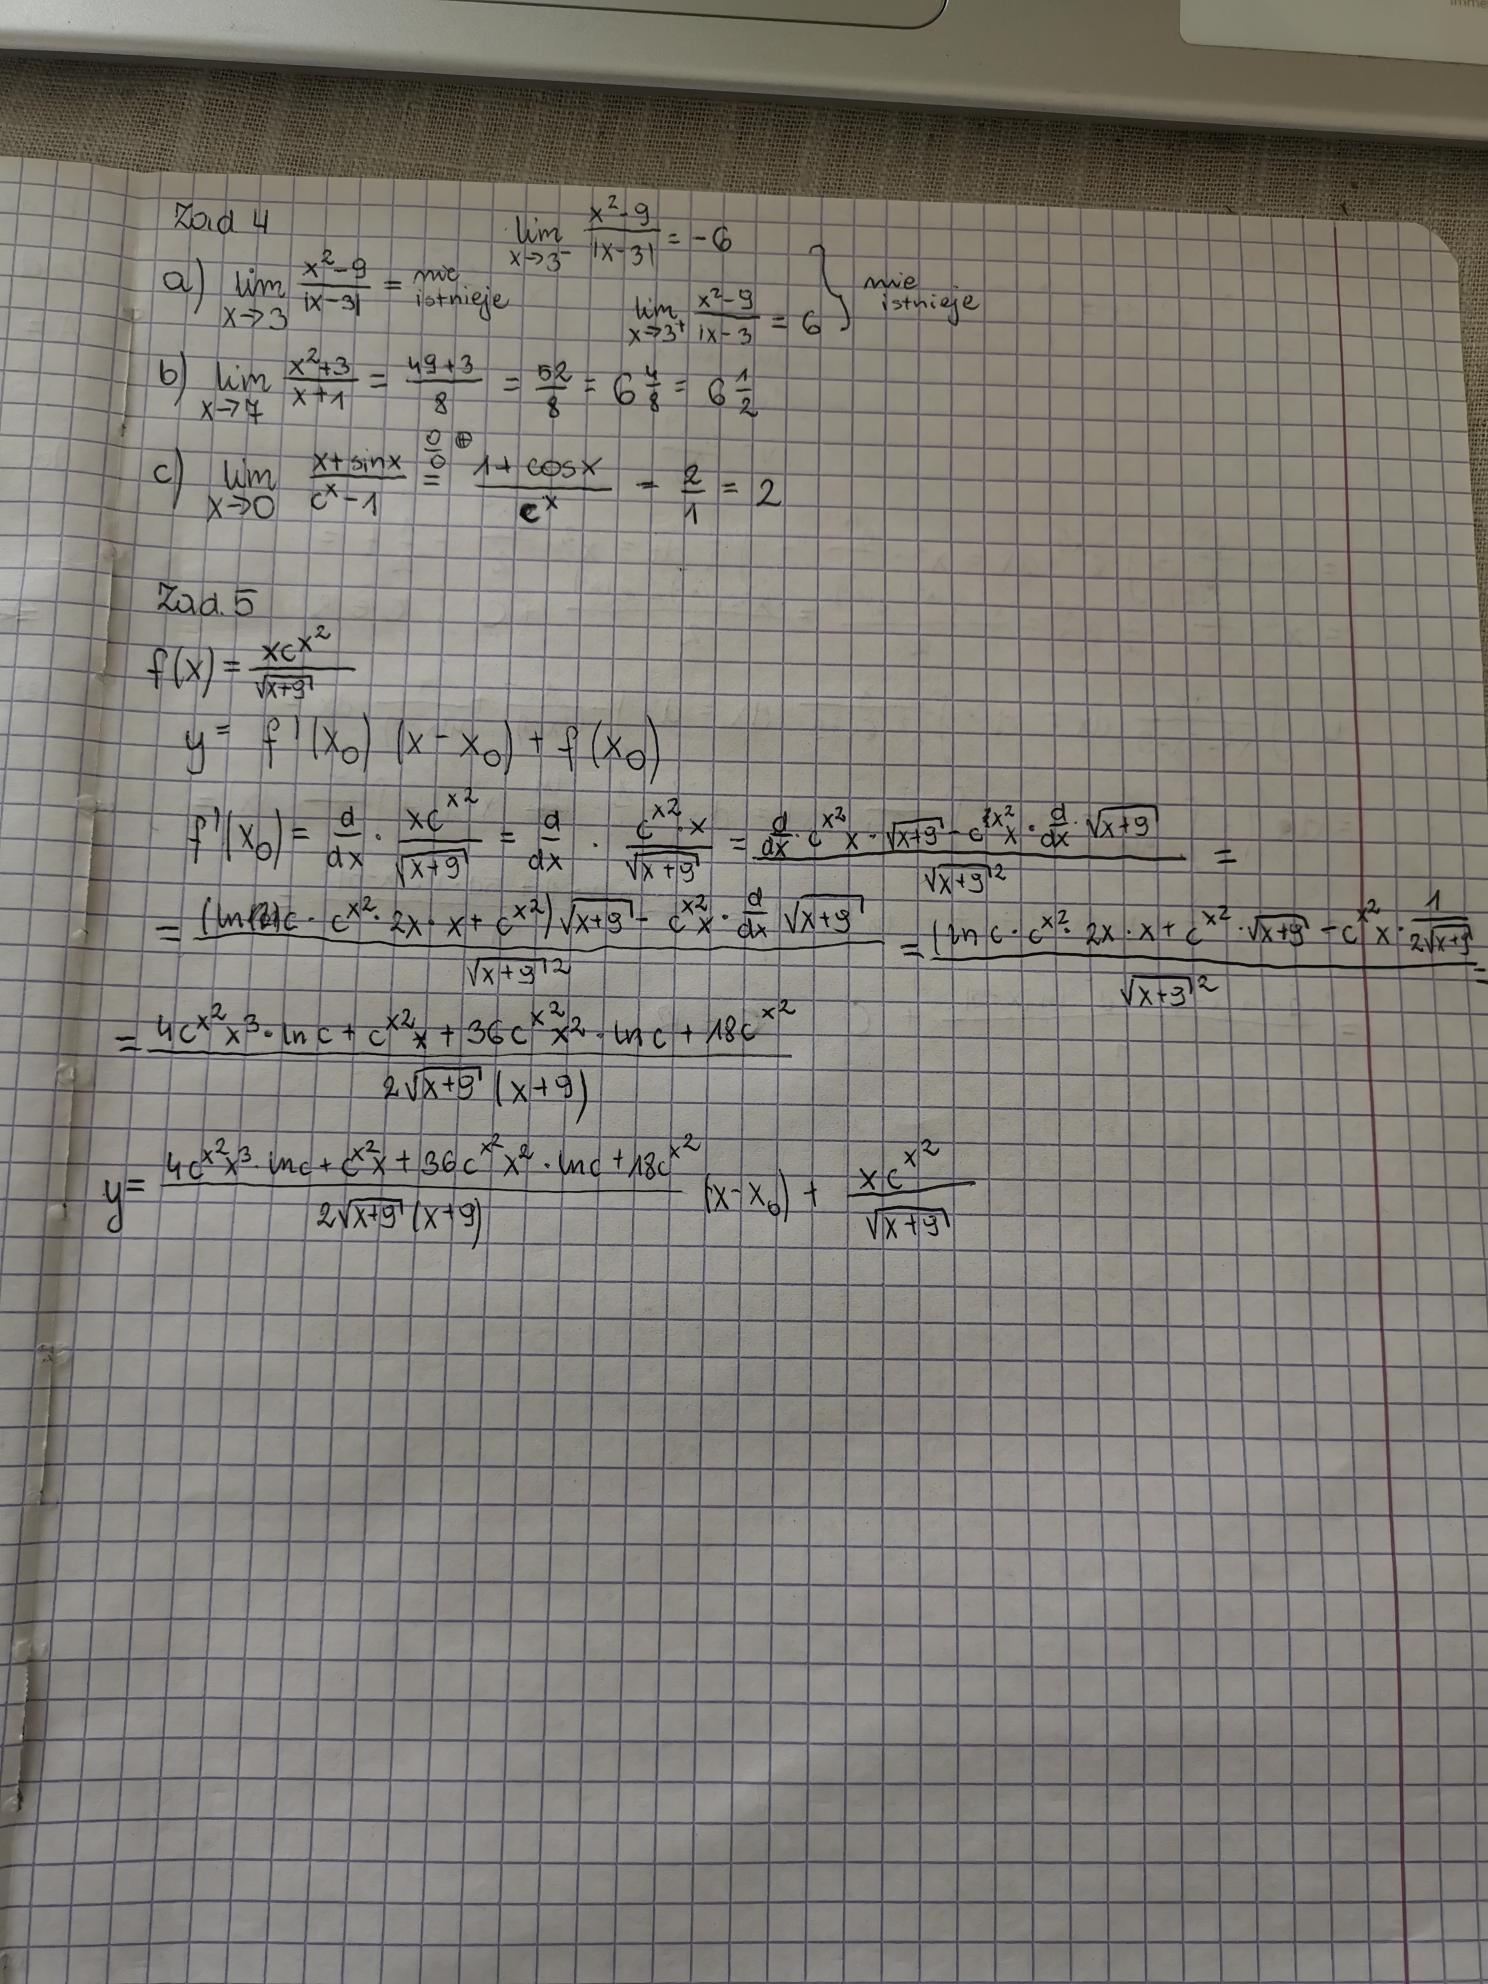 Zad 4
a) lim x→3 (x²-9)/|x-3| = nie istnieje
lim x→3⁻ (x²-9)/|x-3| = -6
lim x→3⁺ (x²-9)/|x-3 = 6 } nie istnieje
b) lim x→7 (x²+3)/(x+1) = (49+3)/8 = 52/8 = 6 4/8 = 6 1/2
c) lim x→0 (x+sinx)/(c^x-1) =^(0/0 ⊕) (1+cosx)/(e^x) = 2/1 = 2
Zad.5
f(x) = (xc^(x²))/√(x+9)
y = f'(x₀) (x-x₀) + f(x₀)
f'(x₀) = d/dx · (xc^(x²))/√(x+9) = d/dx · (c^(x²)·x)/√(x+9) = (d/dx · c^(x²) x · √(x+9) - c^(x²) x · d/dx · √(x+9))/√(x+9)² =
= ( c · c^(x²) · 2x · x + c^(x²)) √(x+9) - c^(x²) x · d/dx √(x+9))/√(x+9)² = ((ln c · c^(x²) · 2x · x + c^(x²) · √(x+9) - c^(x²) x · 1/(2√(x+9)))/√(x+9)² =
= (4c^(x²) x³ · ln c + c^(x²) x + 36c^(x²) x² · ln c + 18c^(x²))/(2√(x+9) (x+9))
y = (4c^(x²) x³ · ln c + c^(x²) x + 36c^(x²) x² · ln c + 18c^(x²))/(2√(x+9) (x+9)) (x-x₀) + (xc^(x²))/√(x+9)